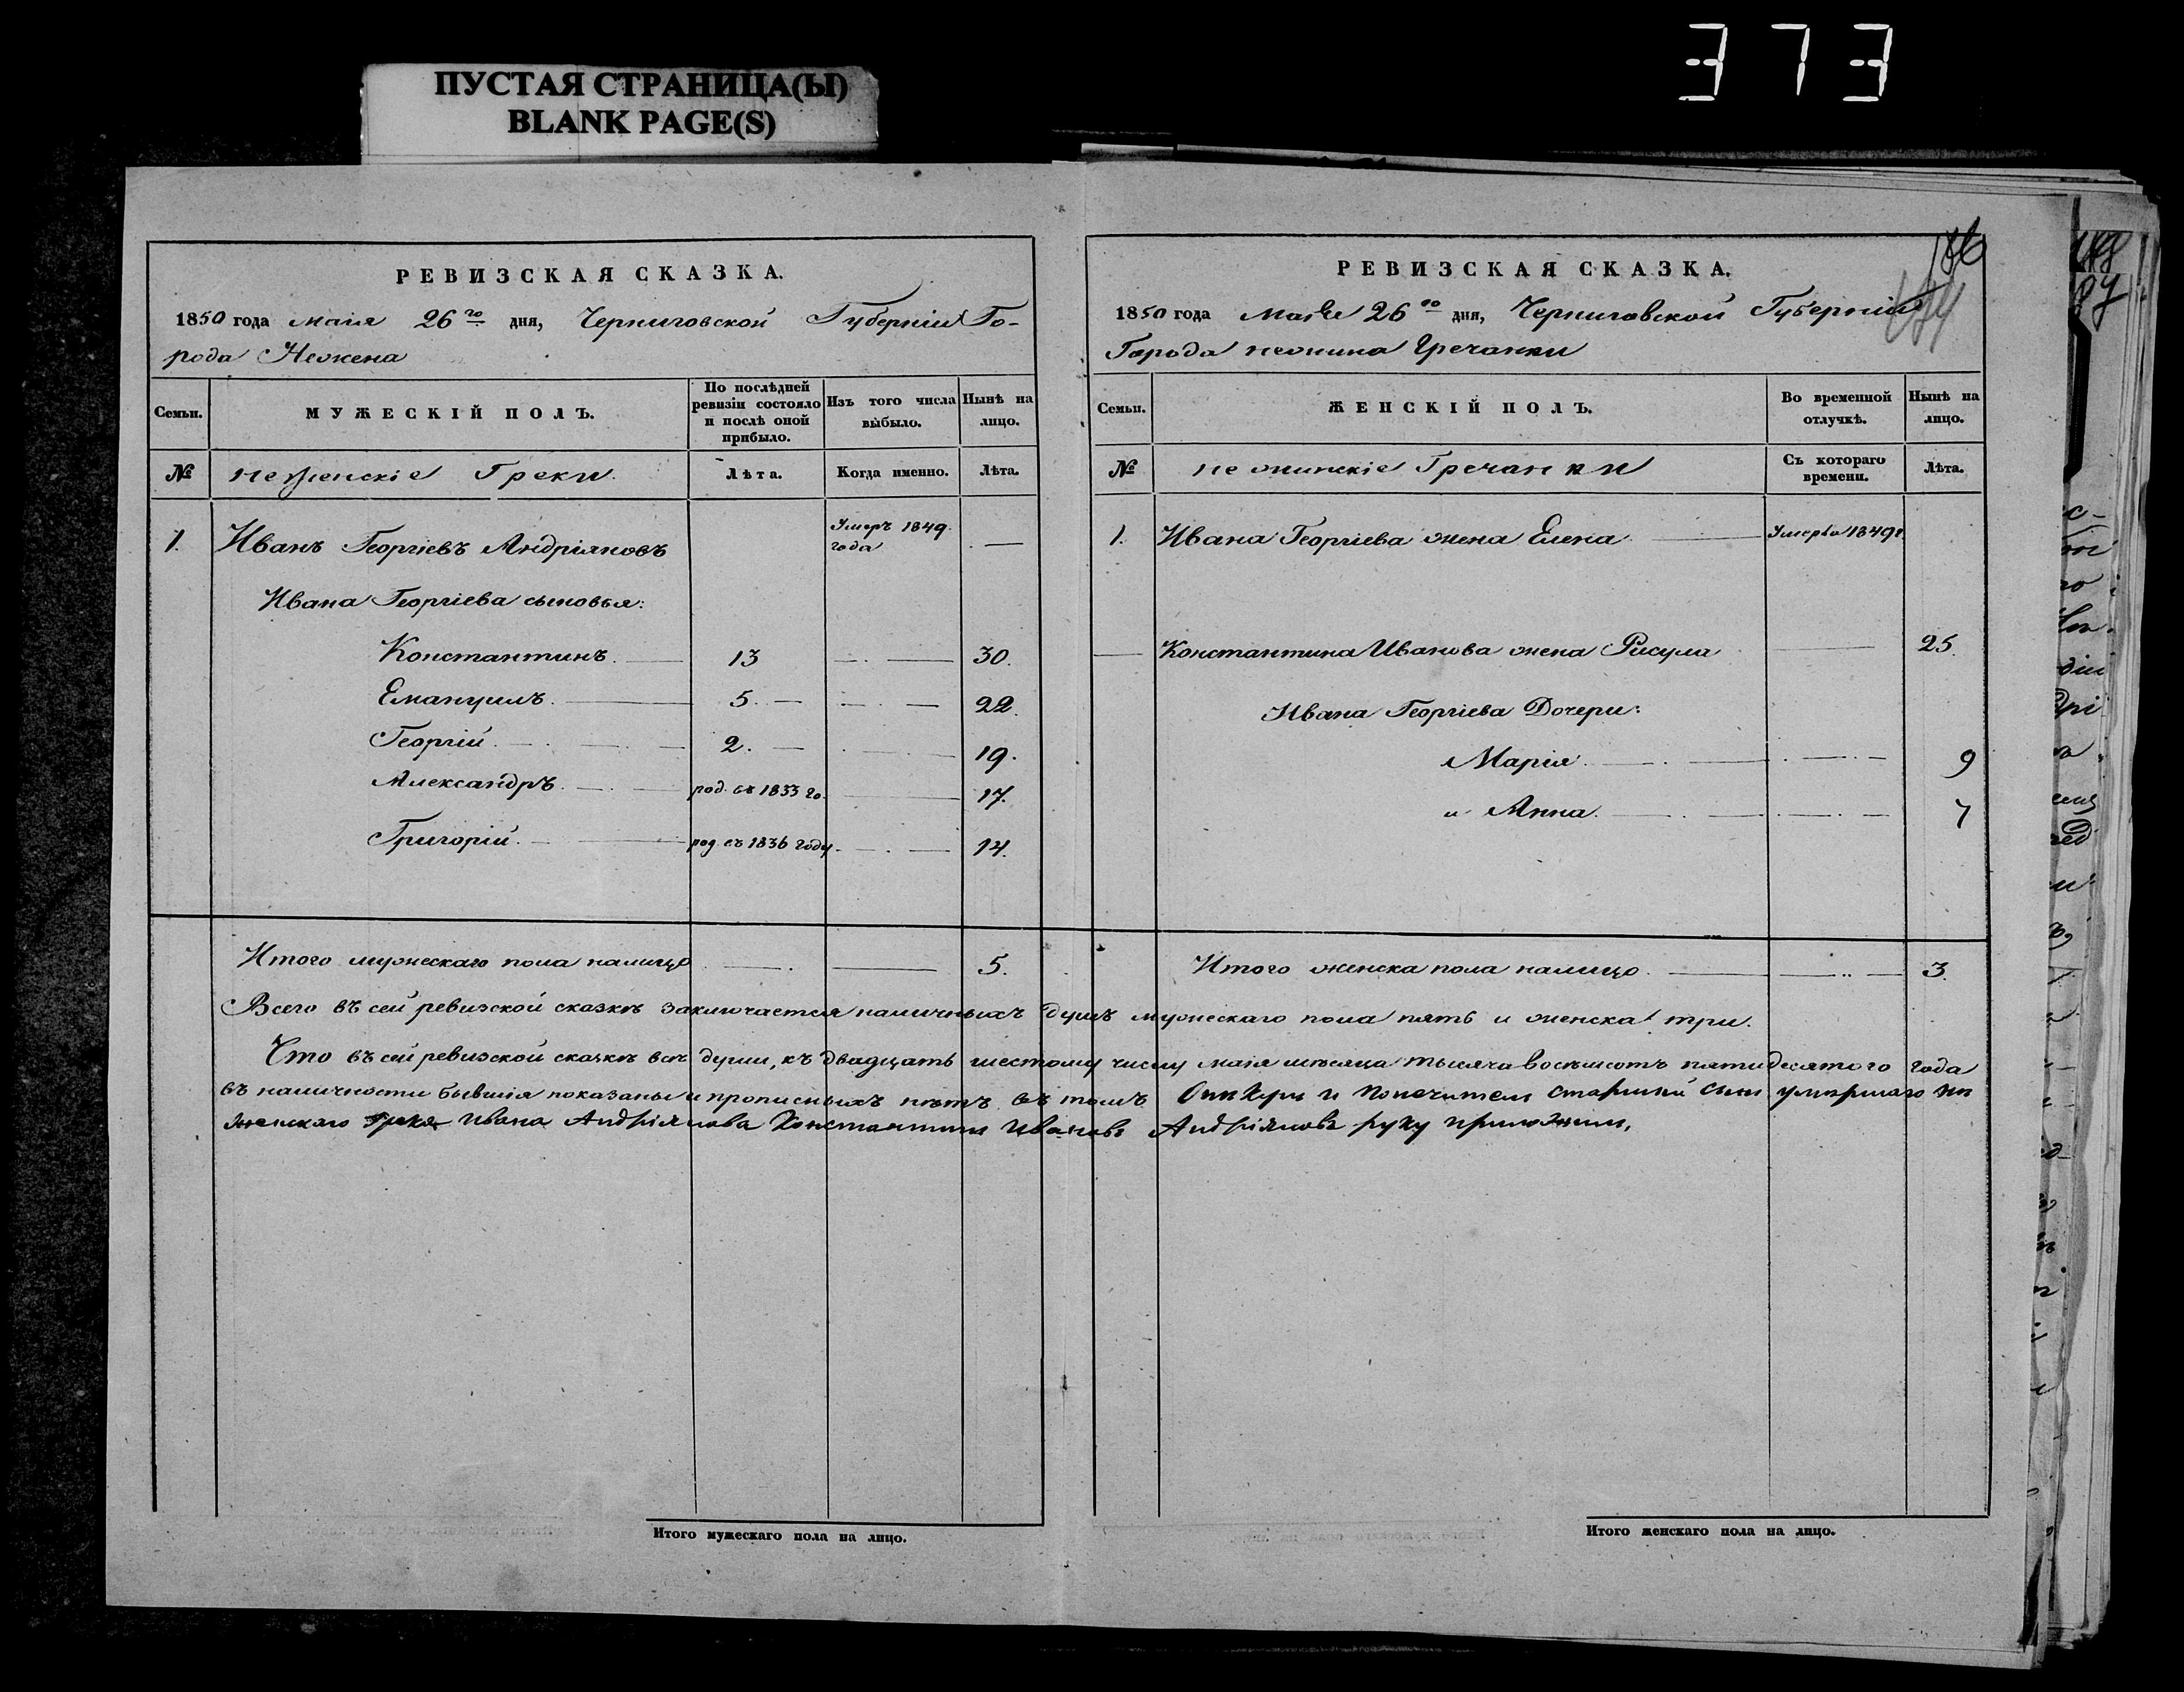 373
ПУСТАЯ СТРАНИЦА(Ы)
BLANK PAGE(S)
РЕВИЗСКАЯ СКАЗКА.
1850 года маія 26го дня, Черниговской Губерніи Го-
рода Нежена
Семьи.
МУЖЕСКІЙ ПОЛЪ.
По послѣдней ревизіи состояло и послѣ оной прибыло.
Изъ того числа выбыло.
Нынѣ на лицо.
№ неженскіе Греки. Лѣта. Когда именно. Лѣта.
1. Иванъ Георгіевъ Андріяновъ Умеръ 1849 года —
Ивана Георгіева сыновья:
Константинъ. 13 — 30.
Емануилъ. 5. — 22.
Георгій. 2. — 19.
Александръ. род. въ 1833 го. 17.
Григорій. род. въ 1836 году 14.
Итого мужескаго пола налицо 5.
186
РЕВИЗСКАЯ СКАЗКА.
1850 года Маія 26го дня, Черниговской Губерніи
Города нежина Гречанки
Семьи.
ЖЕНСКІЙ ПОЛЪ.
Во временной отлучкѣ.
Нынѣ на лицо.
№ нежинскіе Гречанки Съ котораго времени. Лѣта.
1. Ивана Георгіева жена Елена Умерла 1849г
Константина Иванова жена 25.
Ивана Георгіева Дочери:
Марія. 9
и Анна. 7
Итого женска пола налицо. 3.
Всего въ сей ревизской сказкѣ заключается наличныхъ душъ мужескаго пола пять и женска три.
Что въ сей ревизской сказкѣ всѣ души, къ двадцать шестому числу маія мѣсяца тысяча восемсотъ пятидесятого года
въ наличности бывшія показаны и прописныхъ нѣтъ, въ томъ Опекунъ и попечитель старшій сынъ умершаго не
женскаго Грека Ивана Андріянова Константинъ Ивановъ Андріяновъ руку приложилъ.
Итого мужескаго пола на лицо.
Итого женскаго пола на лицо.